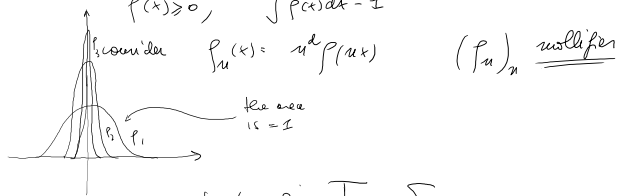 ρ(x) ≥ 0, ∫ ρ(x) dx = 1
consider ρₙ(x) = nᵈ ρ(nx) (ρₙ)ₙ mollifier
ρ₃
the area
is = 1
ρ₂ ρ₁